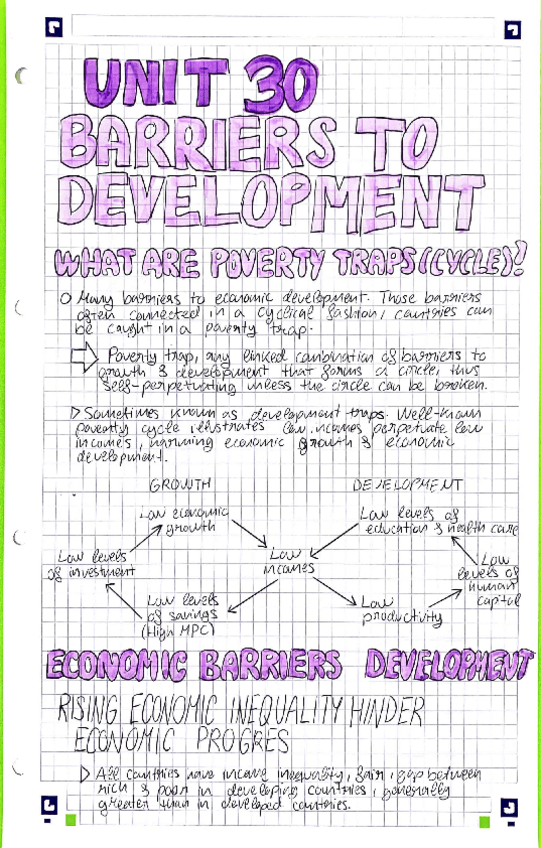 UNIT 30
BARRIERS TO
DEVELOPMENT
WHAT ARE POVERTY TRAPS (CYCLE)?
Many barriers to economic development. Those barriers
often connected in a cyclical fashion, countries can
be caught in a poverty trap.
Poverty trap, any linked combination of barriers to
growth & development that forms a circle, thus
self-perpetuating unless the circle can be broken.
Sometimes known as development traps. Well-known
poverty cycle illustrates low incomes perpetuate low
incomes, harming economic growth & economic
development.
GROWTH
DEVELOPMENT
Low economic
growth
Low levels of
education & health care
Low levels
of investment
Low
incomes
Low
levels of
human
capital
Low levels
of savings
(High MPC)
Low
productivity
ECONOMIC BARRIERS DEVELOPMENT
RISING ECONOMIC INEQUALITY HINDER
ECONOMIC PROGRES
All countries have income inequality, gap between
rich & poor in developing countries, generally
greater than in developed countries.